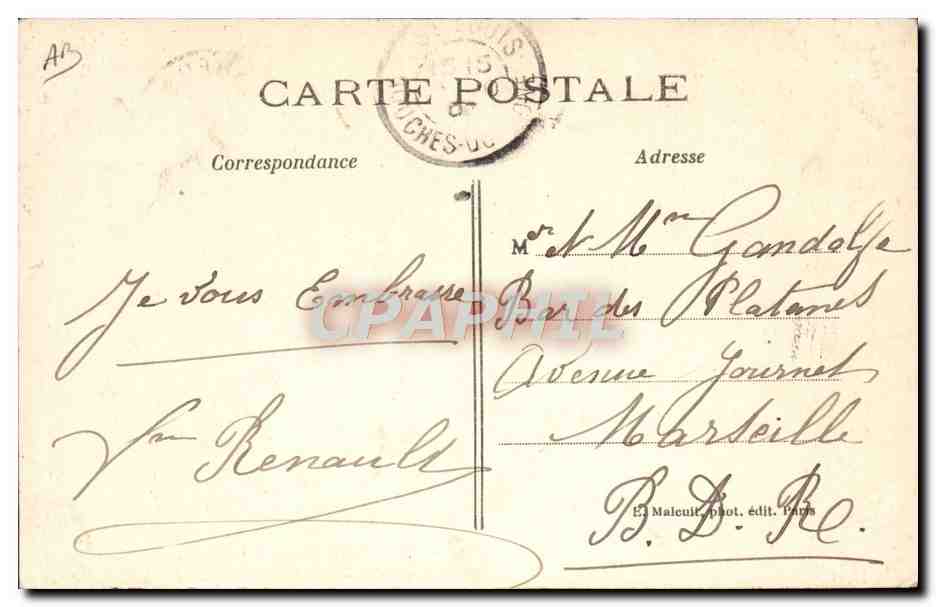 AB
CARTE POSTALE
BOUCHES-DU
Correspondance
Adresse
Je vous Embrasse
Renault
Mer N Mme Gandolfe
Bar des Platanes
Avenue Journet
Marseille
B. D. R.
E. Malcuit, phot. édit. Paris
CPAPHIL